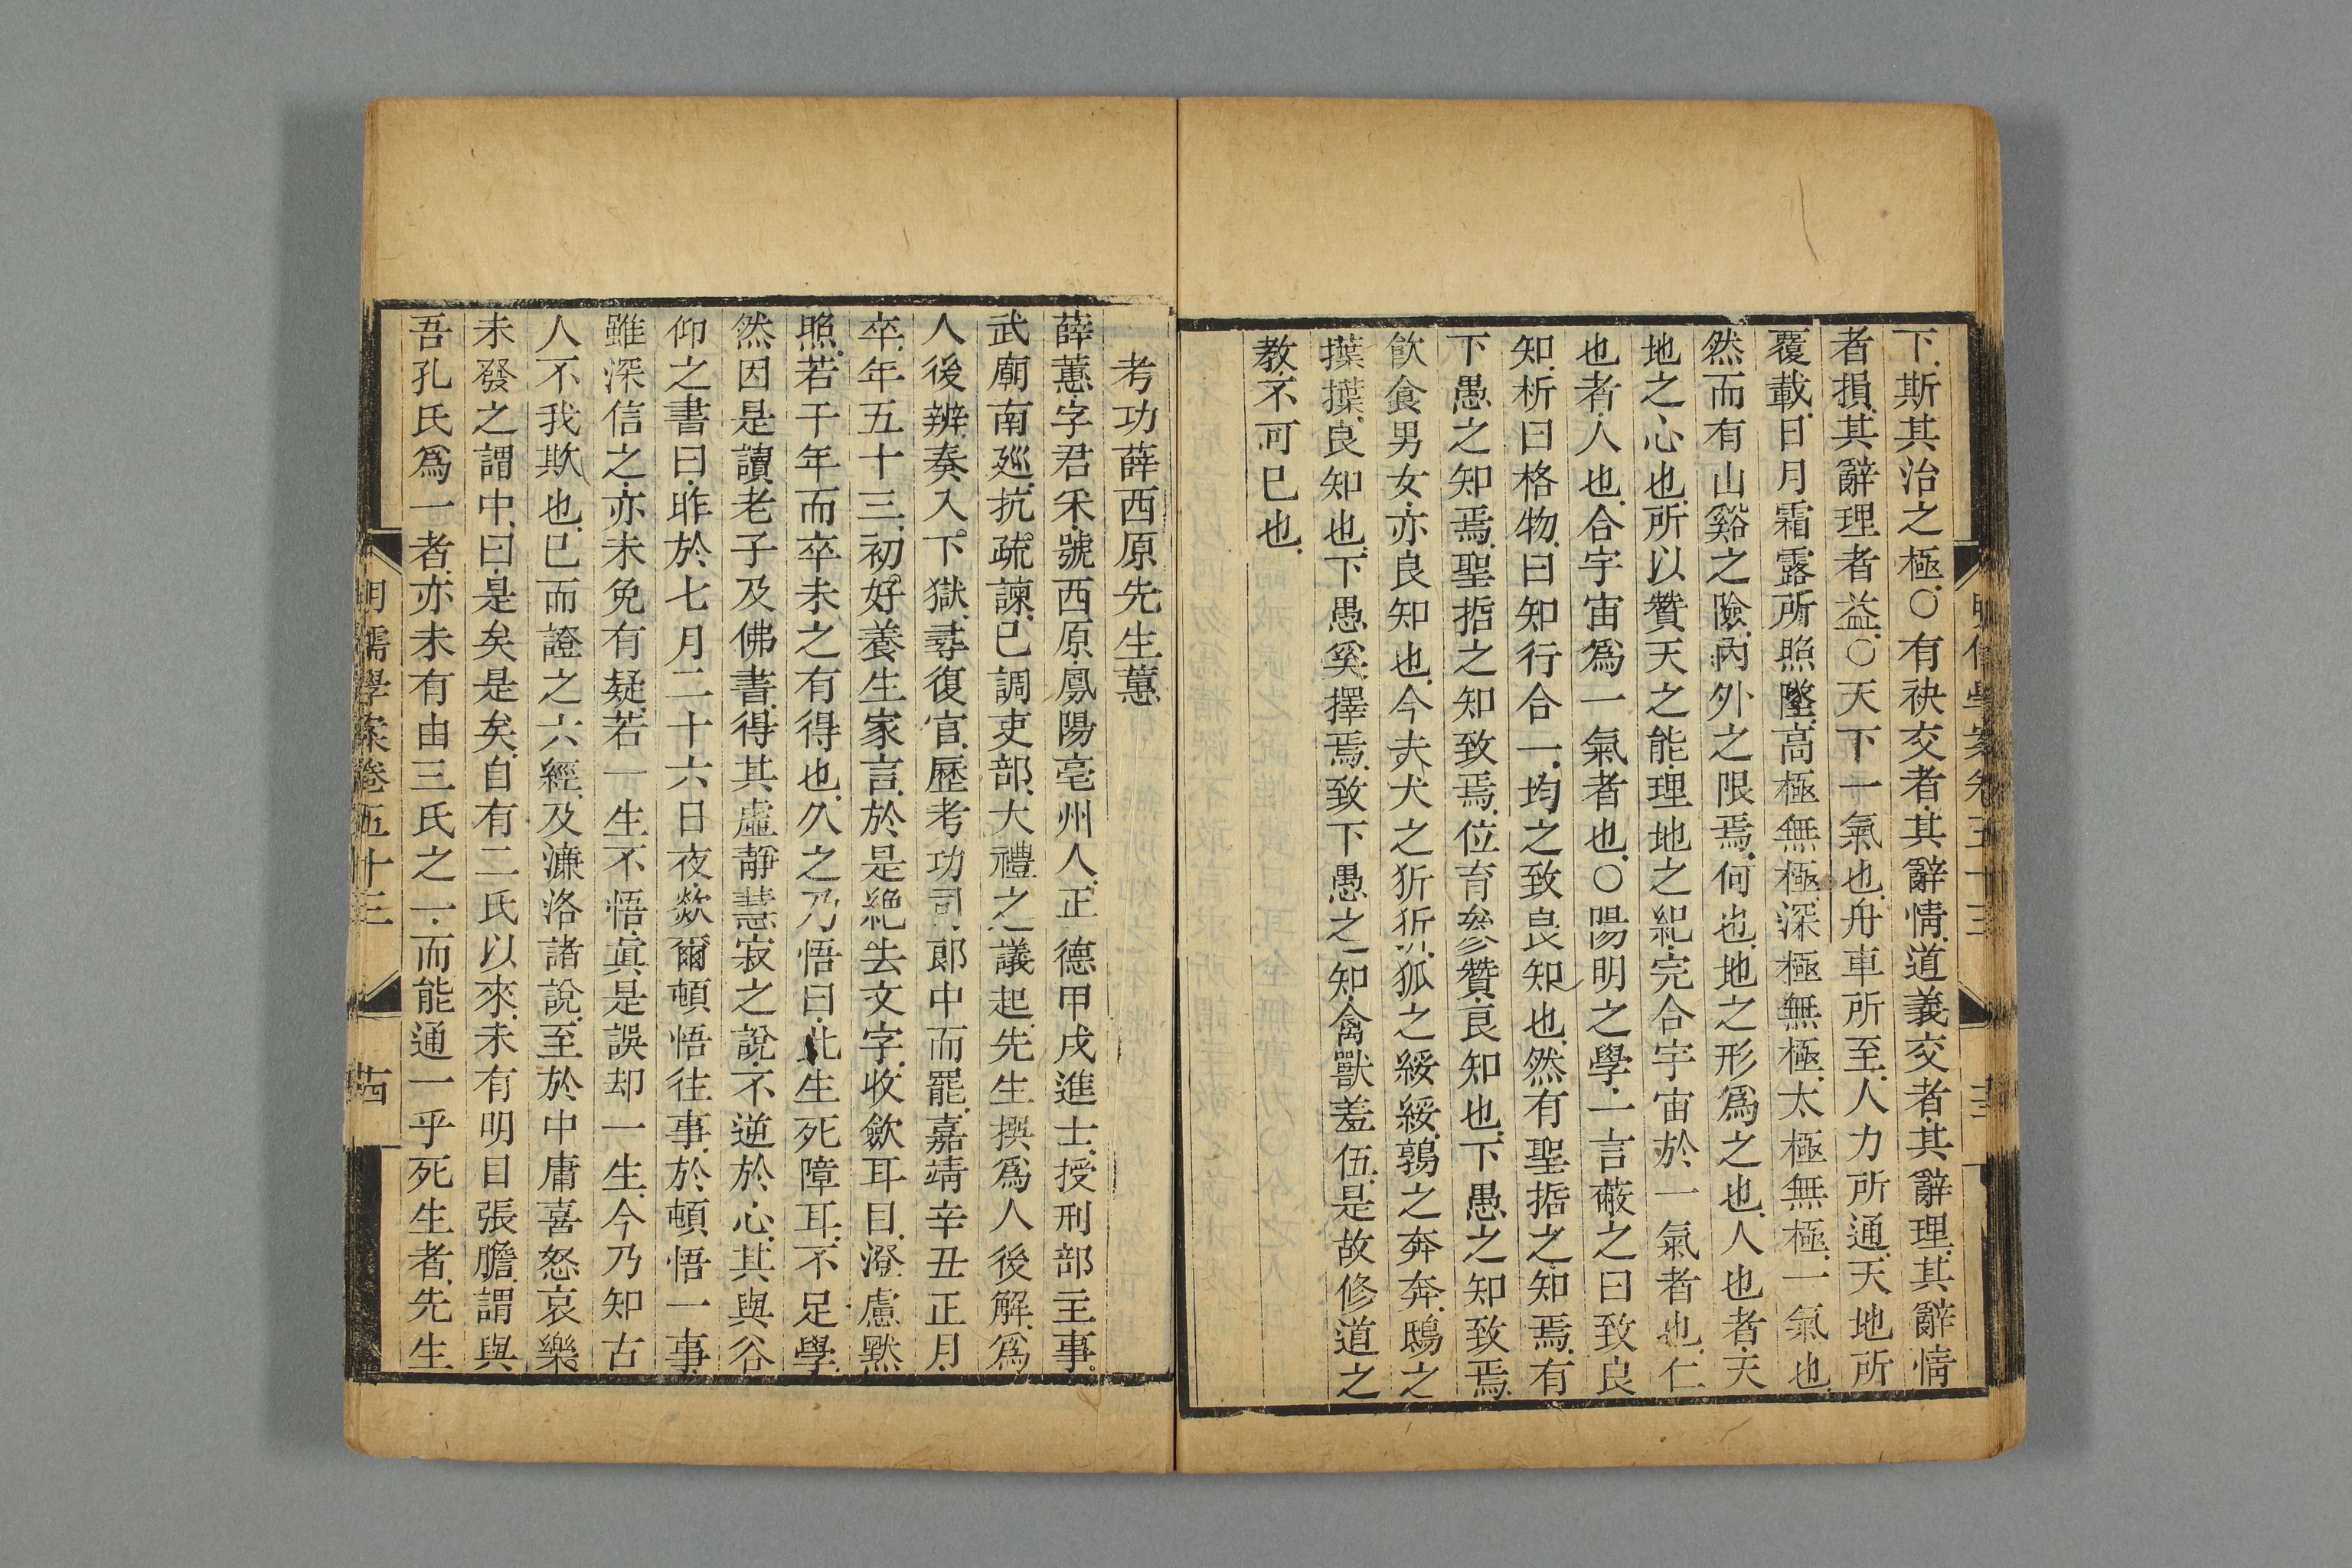 下斯其治之極○有袂交者其辭情道義交者其辭理其辭情
者損其辭理者益○天下一氣也舟車所至人力所通天地所
覆載日月霜露所照墜高極無極深極無極太極無極一氣也
然而有山谿之險內外之限焉何也地之形爲之也人也者天
地之心也所以贊天之能理地之紀完合宇宙於一氣者也仁
也者人也合宇宙爲一氣者也○陽明之學一言蔽之曰致良
知析曰格物曰知行合一均之致良知也然有聖㨖之知焉有
下愚之知焉聖㨖之知致焉位育參贊良知也下愚之知致焉
飲食男女亦良知也今夫犬之狾狾狐之綏綏鶉之奔奔鴟之
撲撲良知也下愚奚擇焉致下愚之知禽獸羞伍是故修道之
教不可已也
考功薛西原先生蕙
薛蕙字君采號西原鳳陽亳州人正德甲戌進士授刑部主事
武廟南廵抗疏諫已調吏部大禮之議起先生撰爲人後解爲
人後辨奏入下獄尋復官歷考功司郎中而罷嘉靖辛丑正月
卒年五十三初好養生家言於是絶去文字收斂耳目澄慮默
照若干年而卒未之有得也久之乃悟曰此生死障耳不足學
然因是讀老子及佛書得其虛靜慧寂之說不逆於心其與谷
仰之書曰昨於七月二十六日夜欻爾頓悟往事於頓悟一事
雖深信之亦未免有疑若一生不悟眞是誤却一生今乃知古
人不我欺也已而證之六經及濂洛諸說至於中庸喜怒哀樂
未發之謂中曰是矣是矣自有二氏以來未有明目張膽謂與
吾孔氏爲一者亦未有由三氏之一而能通一乎死生者先生
明儒學案卷五十三
十四